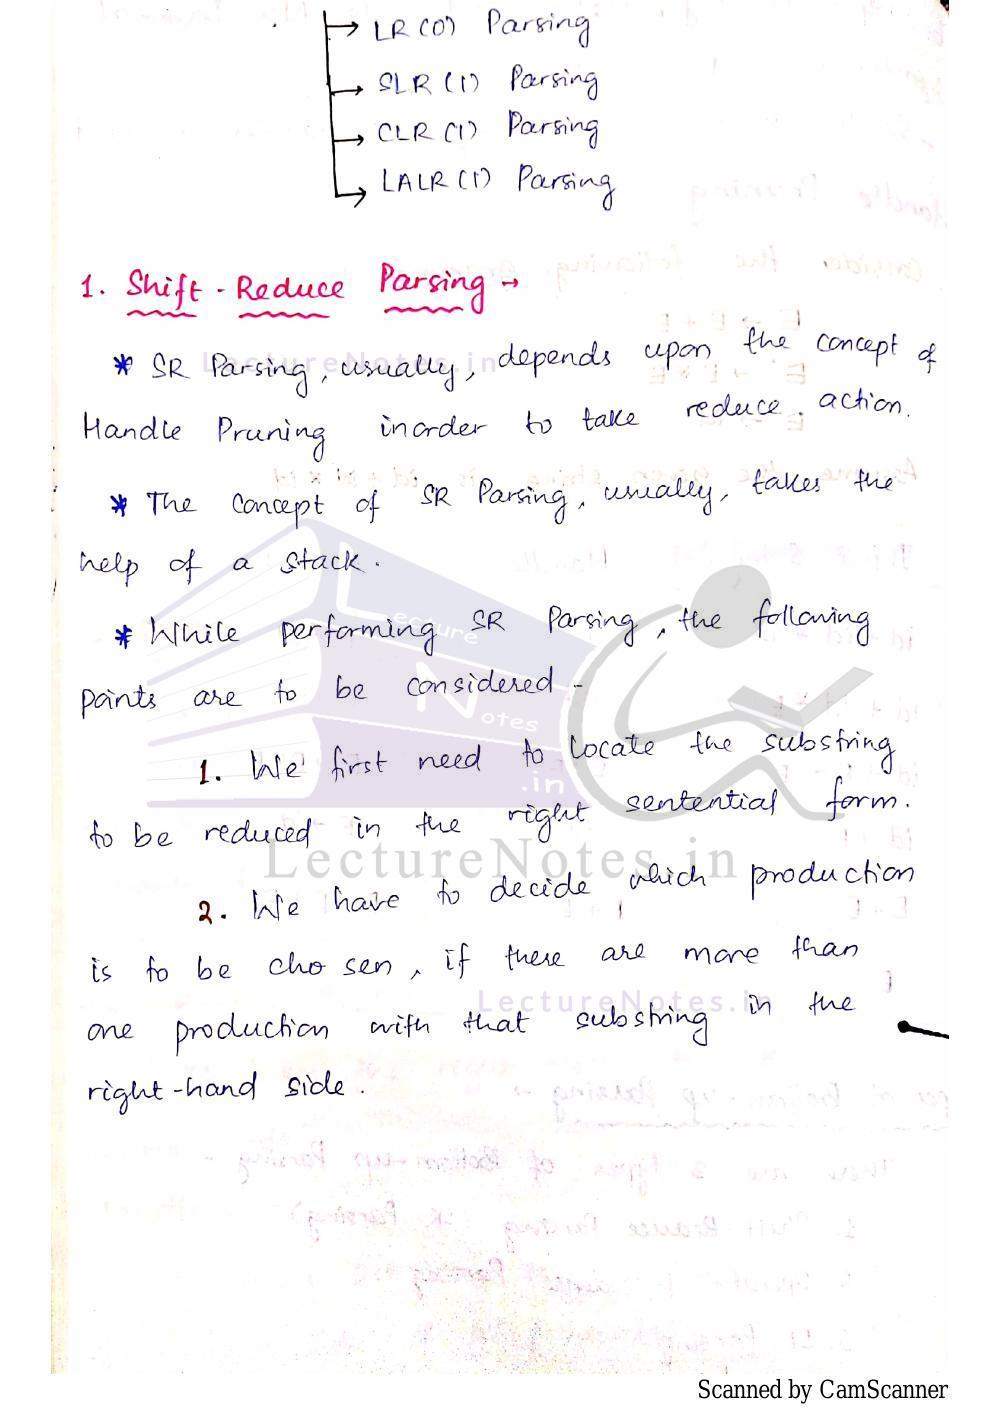 → LR (0) Parsing
→ SLR (1) Parsing
→ CLR (1) Parsing
→ LALR (1) Parsing
1. Shift - Reduce Parsing →
* SR Parsing, usually, depends upon the concept of
Handle Pruning inorder to take reduce action.
* The concept of SR Parsing, usually, takes the
help of a stack.
* While performing SR Parsing, the following
points are to be considered -
1. We first need to locate the substring
to be reduced in the right sentential form.
2. We have to decide which production
is to be chosen, if there are more than
one production with that substring in the
right-hand side.
LectureNotes.in
Lecture
Notes
.in
LectureNotes.in
LectureNotes.in
Scanned by CamScanner